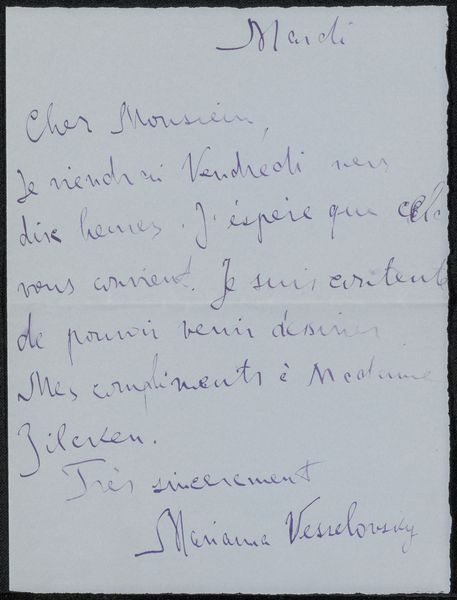 Mardi
Cher Monsieur,
Je viendrai Vendredi vers
dix heures. J'éspère que cela
vous convient. Je suis contente
de pouvoir venir dessiner
Mes compliments à Madame
Zilcken.
Très sincerement
Marianna Vesselovsky